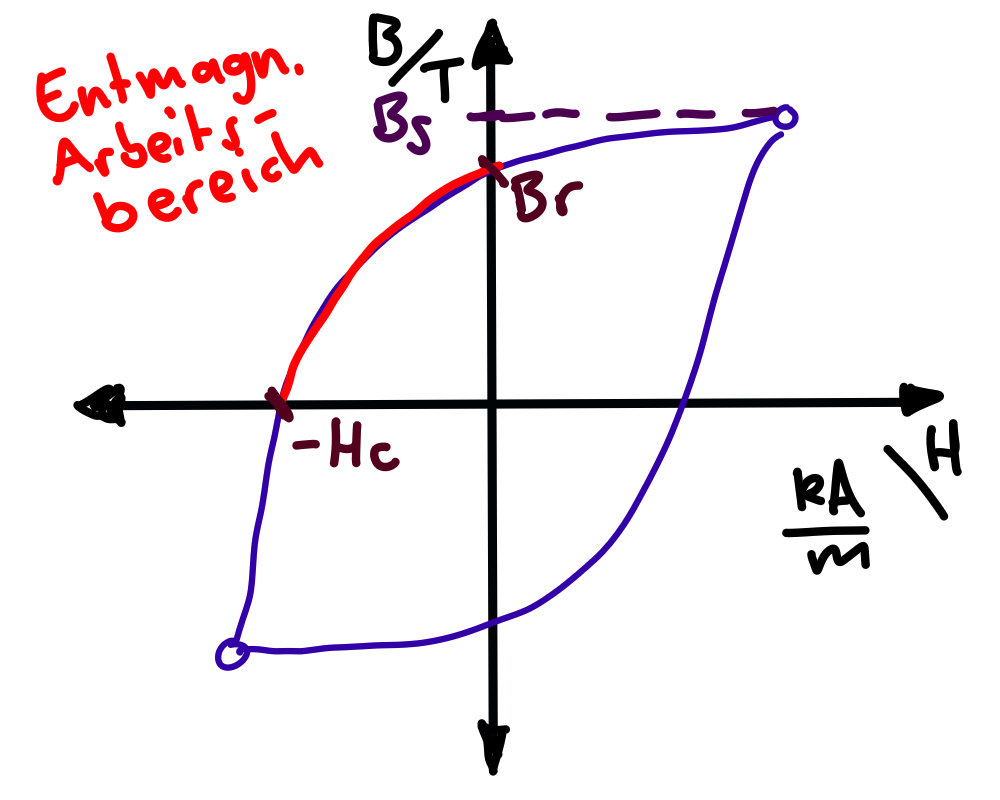 Entmagn.
Arbeits-
bereich
B/T
Bs
Br
-Hc
kA/m \ H